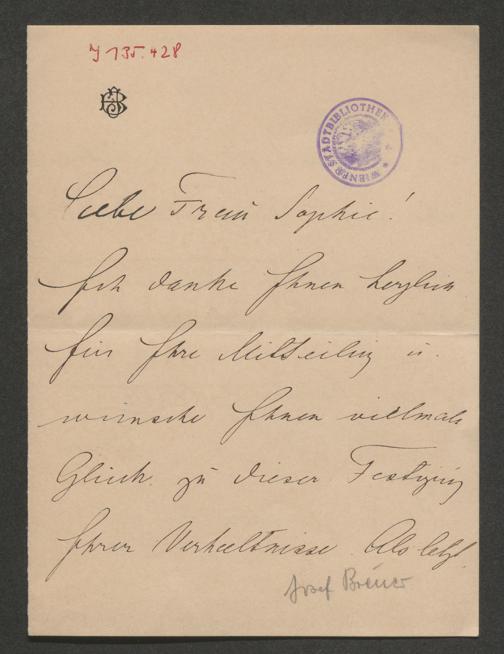 J 135.428
WIENER STADTBIBLIOTHEK
Liebe Frau Sophie!
Ich danke Ihnen herzlich
für Ihre Mitteilung u.
wünsche Ihnen vielmals
Glück zu dieser Festigung
Ihrer Verhältnisse. Als letzt
Josef Breuer